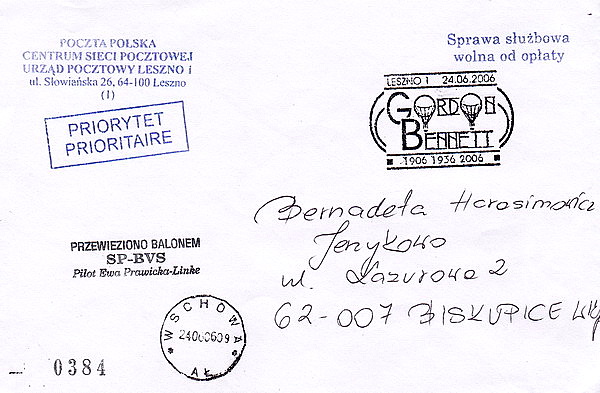 POCZTA POLSKA
CENTRUM SIECI POCZTOWEJ
URZĄD POCZTOWY LESZNO 1
ul. Słowiańska 26, 64-100 Leszno
(1)
Sprawa służbowa
wolna od opłaty
PRIORYTET
PRIORITAIRE
LESZNO 1 24.06.2006
GORDON
BENNETT
1906 1936 2006
Bernadeta Harasimowicz
Jerzykowo
ul. Lazurowa 2
62-007 BISKUPICE WLKP
PRZEWIEZIONO BALONEM
SP-BVS
Pilot Ewa Prawicka-Linke
* WSCHOWA *
24060609
AŁ
0384